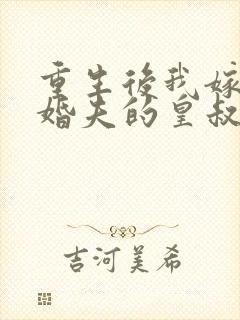 重生後我嫁
婚夫的皇叔
吉河美希